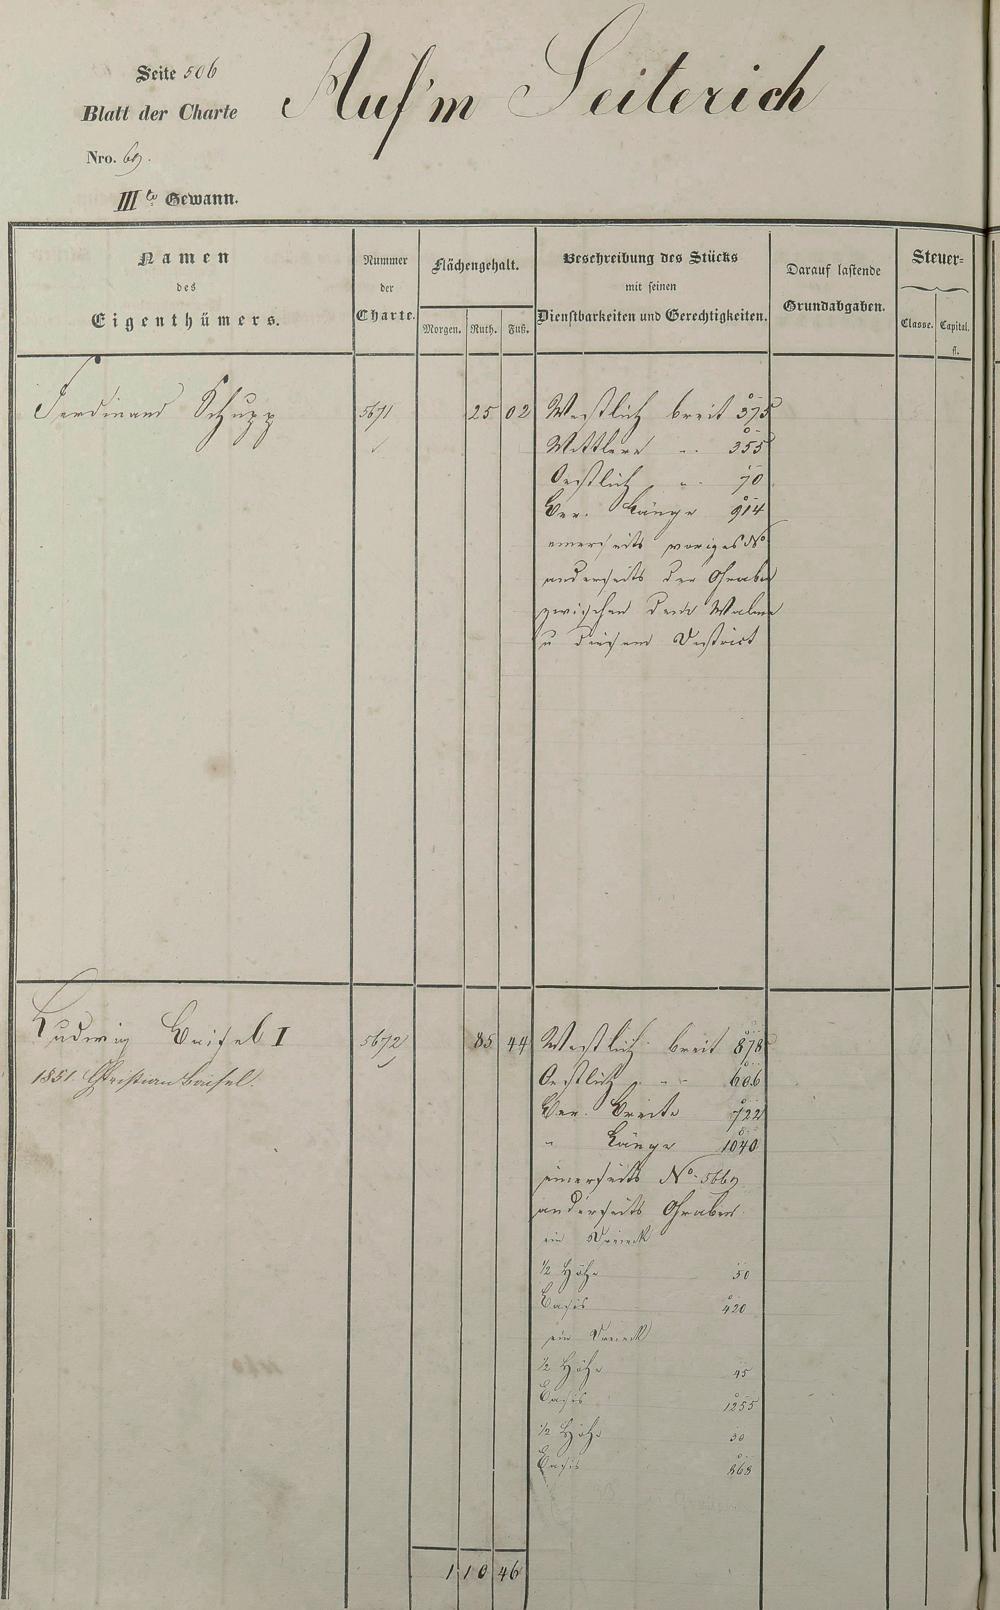 Seite 506
Auf'm Seiterich
Blatt der Charte
Nro. 69.
III te Gewann.
Namen
des
Eigenthümers.
Nummer
der
Charte.
Flächengehalt.
Morgen. Ruth. Fuß.
Beschreibung des Stücks
mit seinen
Dienstbarkeiten und Gerechtigkeiten.
Darauf lastende
Grundabgaben.
Steuer-
Classe. Capital.
fl.
Ferdinand Schupp 5671 25 02 Westlich breit 375
Mittlere " 355
Oestlich " 70
Ver. Länge 914
einerseits voriges No
anderseits der Graben
zwischen dem
u diesem District
Ludwig Baisel I 5672 85 44 Westlich breit 878
1851. Christian Baisel. Oestlich " 606
Ver. Breite 722
" Länge 1040
einerseits No 5669
anderseits Graben
ein Dreieck
1/2 Höhe 50
Basis 420
ein Dreieck
1/2 Höhe 45
Basis 1255
1/2 Höhe 30
Basis 868
1 10 46